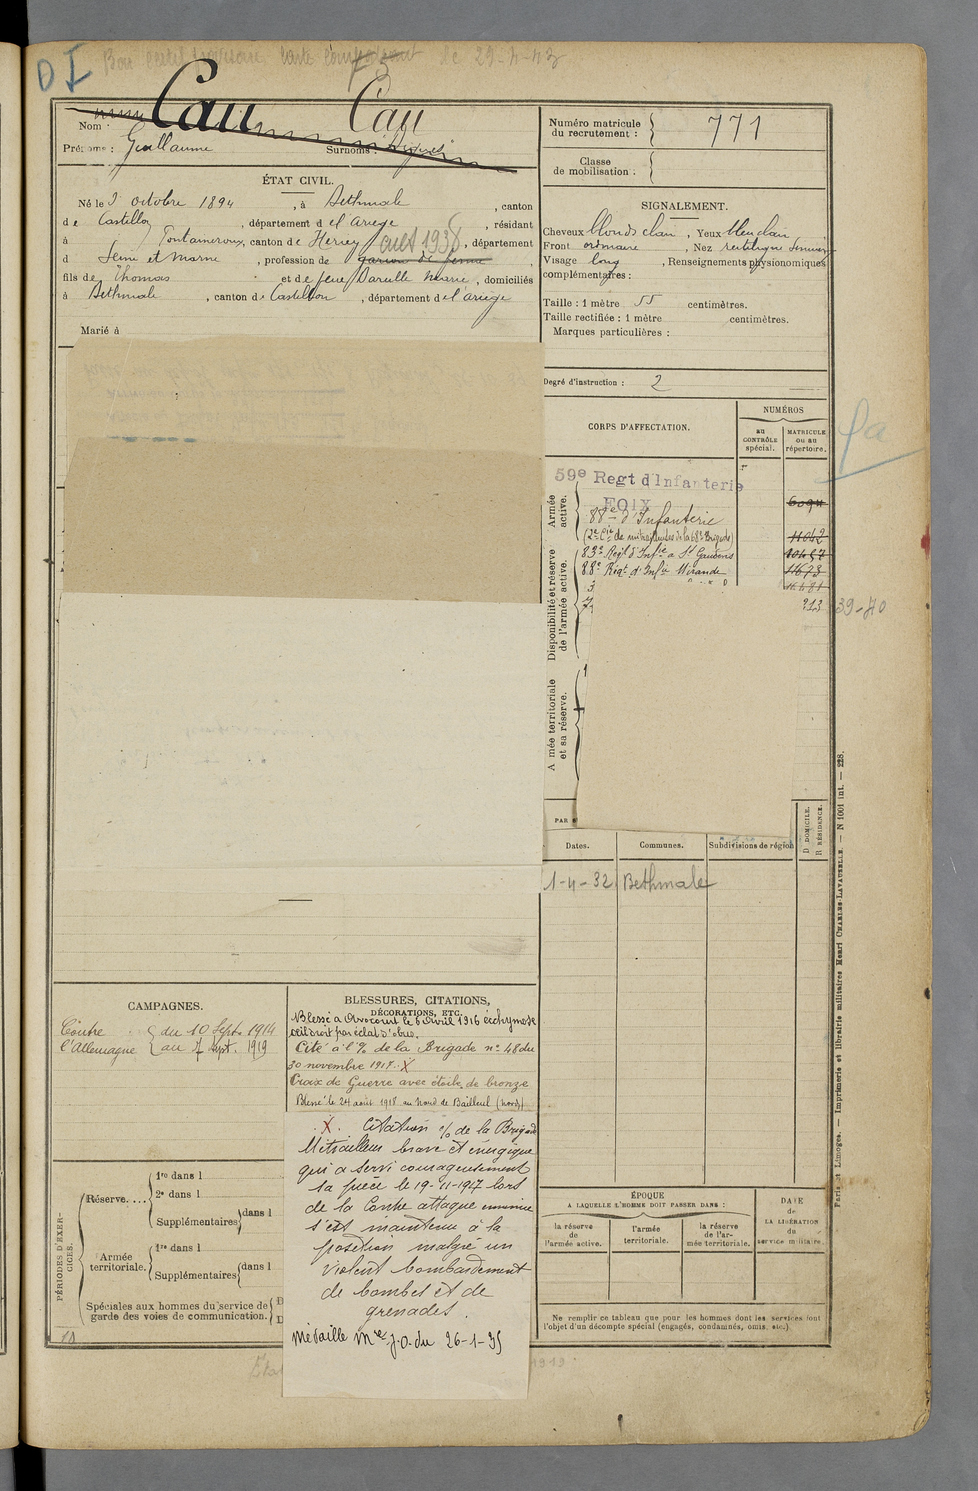 DI
Bon certif provisoire carte combattant le 29-4-43
Nom :
Cau
Cau
Prénoms : Guillaume
Surnoms :
ÉTAT CIVIL.
Né le 3 octobre 1894, à Bethmale, canton
de Castillon, département d el'ariege, résidant
à Fontaineroux, canton de Hericy cult 1938, département
d Seine et Marne, profession de garçon de ferme,
fils de Thomas et de feue Marie, domiciliés
à Bethmale, canton de Castillon, département de l'ariege
Marié à
Numéro matricule
du recrutement :
771
Classe
de mobilisation :
SIGNALEMENT.
Cheveux blonds clair, Yeux bleu clair
Front ordinaire, Nez rectiligne
Visage long, Renseignements physionomiques
complémentaires :
Taille : 1 mètre 55 centimètres.
Taille rectifiée : 1 mètre centimètres.
Marques particulières :
Degré d'instruction : 2
CORPS D'AFFECTATION.
NUMÉROS
au
CONTRÔLE
spécial.
MATRICULE
ou au
répertoire.
Armée
active.
59e Regt d'Infanterie
FOIX
88e d'Infanterie
(2e Cie de mitrailleuses de la 68e Brigade)
11042
Disponibilité et réserve
de l'armée active.
83e Régt d'Infie à St Gaudens
10457
88e Régt d'Infie Mirande
11673
213
39-40
A mée territoriale
et sa réserve.
PAR S
Dates.
Communes.
Subdivisions de région
D DOMICILE.
R RÉSIDENCE.
1-4-32 Bethmale
CAMPAGNES.
Contre
l'Allemagne
du 10 Septe 1914
au 7 Sept. 1919
BLESSURES, CITATIONS,
DÉCORATIONS, ETC.
Blessé à Avocourt le 6 avril 1916 échymose
œil droit par éclat d'obus.
Cité à l'% de la Brigade n° 48 du
30 novembre 1917. X
Croix de Guerre avec étoile de bronze
Blessé le 24 août 1918 au Nord de Bailleul (Nord)
X. Citation % de la Brigade
Mitrailleur brave et énergique
qui a servi courageusement
sa pièce le 19-11-1917 lors
de la contre attaque ennemie
s'est maintenu à la
position malgré un
violent bombardement
de bombes et de
grenades.
Médaille Mre J.O. du 26-1-35
PÉRIODES D'EXER-
CICES.
Réserve....
1re dans l
2e dans l
Supplémentaires
dans l
Armée
territoriale.
1re dans l
Supplémentaires
dans l
Spéciales aux hommes du service de
garde des voies de communication.
ÉPOQUE
A LAQUELLE L'HOMME DOIT PASSER DANS :
la réserve
de
l'armée active.
l'armée
territoriale.
la réserve
de l'ar-
mée territoriale.
DATE
de
LA LIBÉRATION
du
service militaire.
Ne remplir ce tableau que pour les hommes dont les services font
l'objet d'un décompte spécial (engagés, condamnés, omis, etc.).
Paris et Limoges. — Imprimerie et librairie militaires Henri CHARLES-LAVAUZELLE. — N 1001 int. — 228.